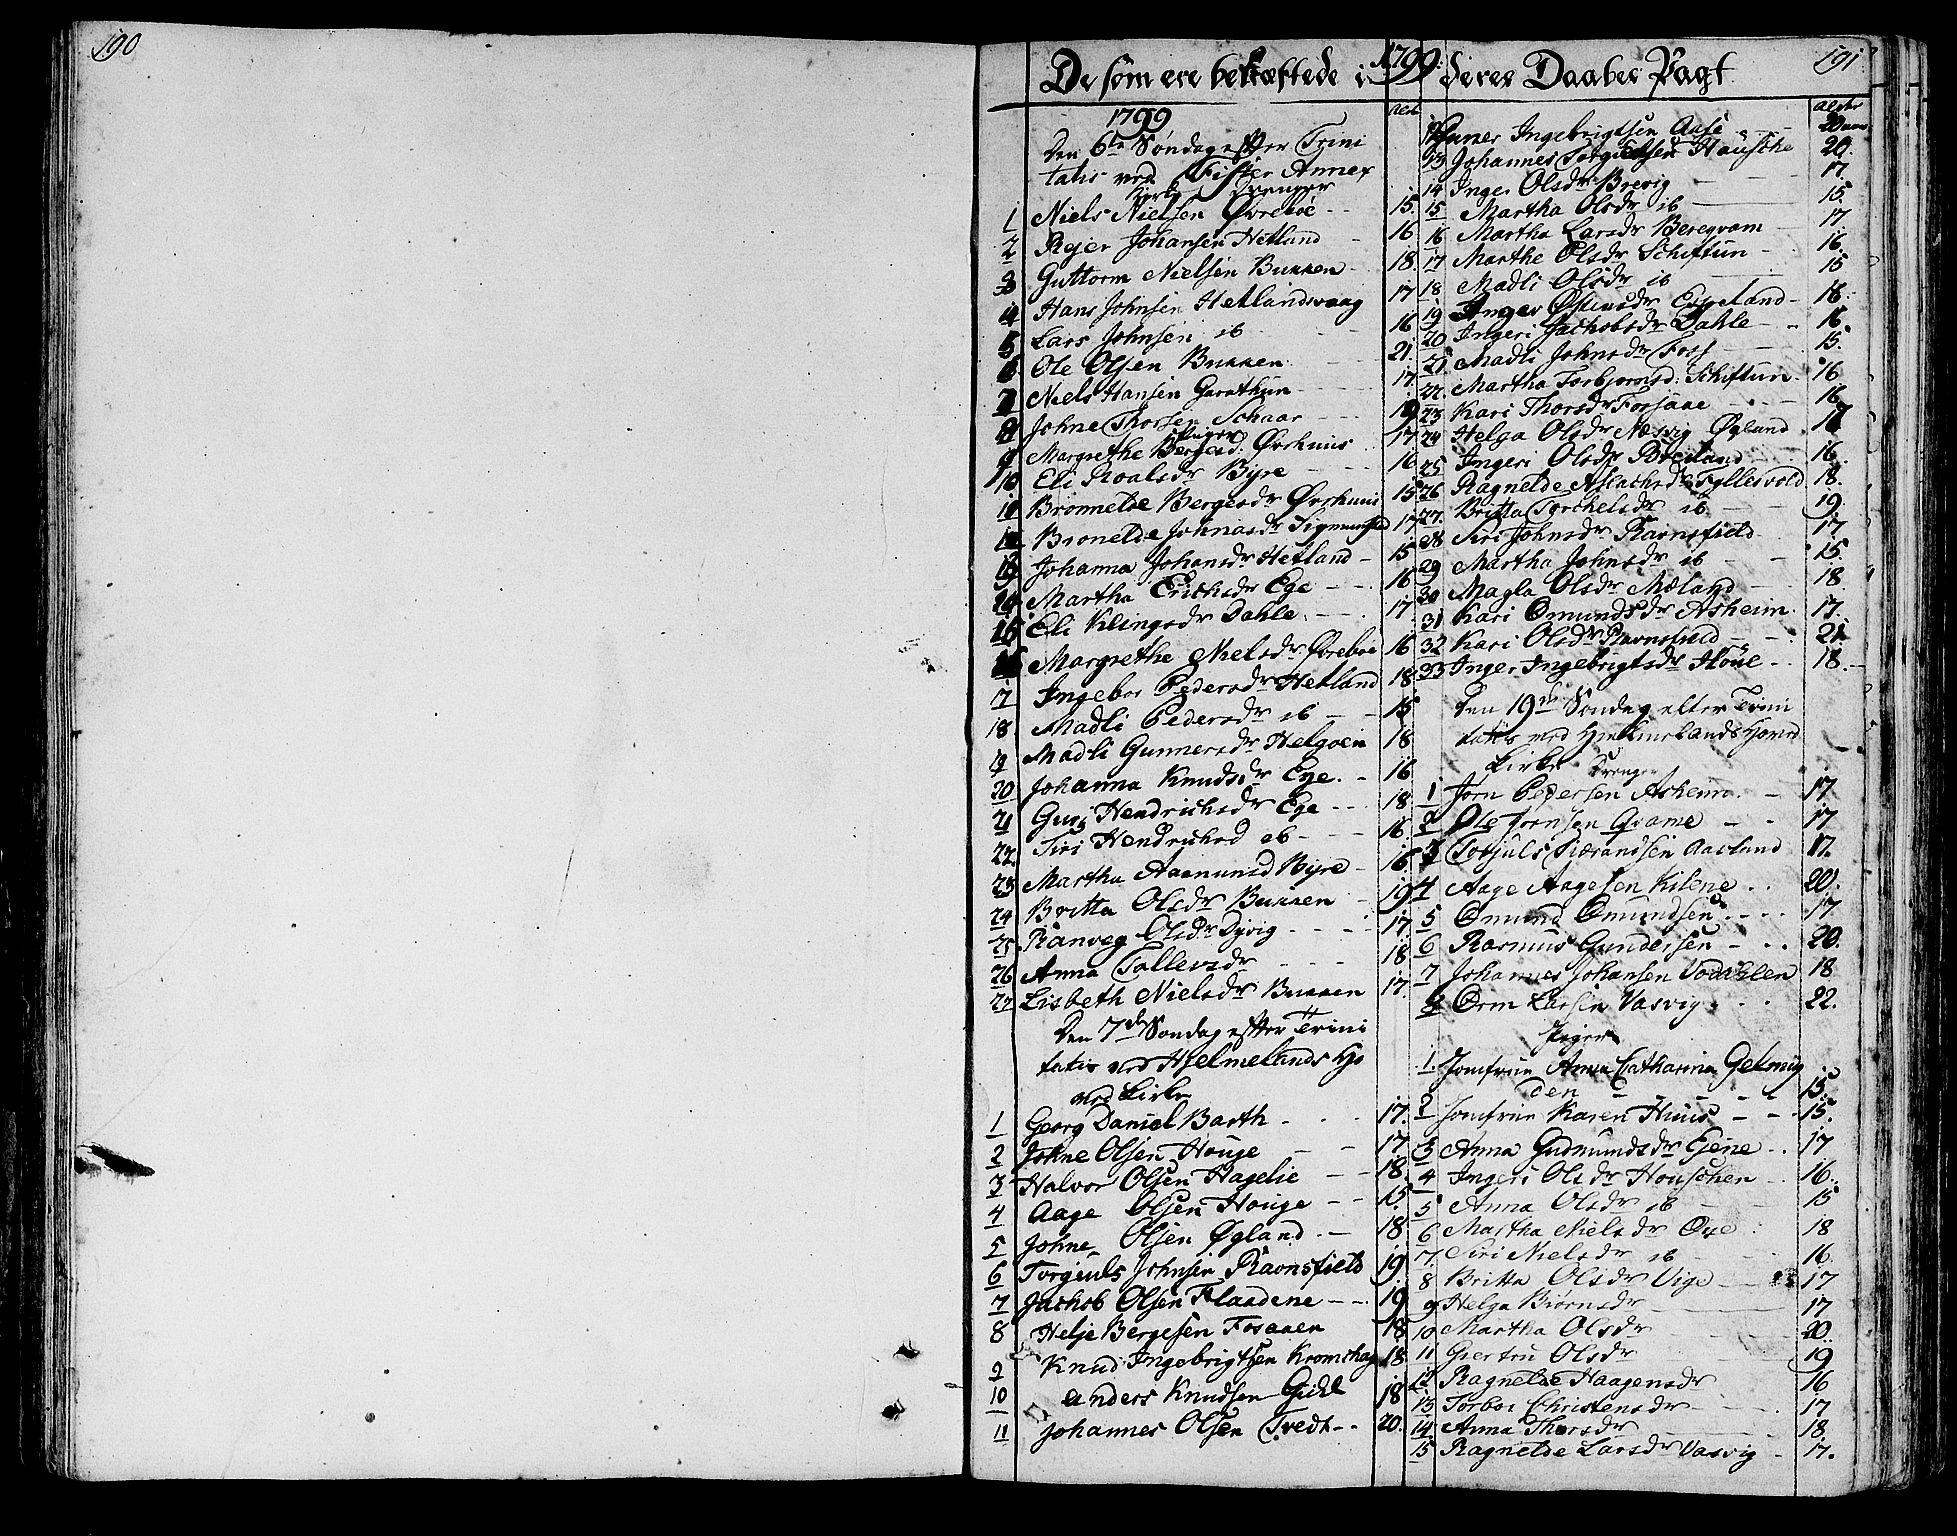 190
191
De som ere bekræftede i 1799 deres Daabes Pagt
1799
Alder
Den 6te Søndag efter Trini
tatis ved Fister Annex
Kirke Drenger
1 Niels Nielsen Øvreboe 15.
2 Rejer Johansen Hetland 16
3 Guttorm Nielsen Bukken 18.
4 Hans Johnsen Hetlandsvaag 17
5 Lars Johnsen ib 16
6 Ole Olsen Bukken 21.
7 Niels Hansen Garathun 17.
8 Johne Thorsen Schaar 19
Piger
9 Margrethe Bergesd: Øvrhuus 17
10 Eli Roalsdr Byre 16
11 Bronnelde Bergesdr Øvrhuus 15
12 Bronelde Johnasdr Sigmunstad 17
13 Johanna Johansdr Hetland 15
14 Martha Erichsdr Ege 16
15 Eli Klingsdr Dahle 17
16 Margrethe Nielsdr Øvreboe 16
17 Ingebor Pedersdr Hetland 18
18 Madli Pedersdr ib 15
19 Madli Gunnersdr Helgøen 18
20 Johanna Knudsdr Ege 16
21 Guri Hendrichsdr Ege 18
22. Siri Hendrichsd ib 16
23 Martha Aamunsd Byre 16
24 Britta Olsdr Bukken 19
25 Ranveg Olsdr Dyvig 17.
26 Anna Tollevsdr 18
27 Lisbeth Nielsdr Bukken 17.
Den 7de Søndag efter Trini
tatis ved Hjelmelands Ho
ved Kirke
1 Georg Daniel Barth 17.
2 Johne Olsen Houge 17.
3 Halvor Olsen Hagelie 18.
4 Aage Olsen Houge 15.
5 Johne Olsen Øgland 18
6 Torgeuls Johnsen Ravnsfield 19
7 Jachob Olsen Flaadene 19
8 Helje Bergesen Fosaaen 18
9 Knud Ingebrigtsen Kromshag 18
10 Anders Knudsen Gidl 18
11 Johannes Olsen Tvedt 20.
Alder
12 Gunner Ingebrigtsen Aase 20 aar
13 Johannes Torgiulsen Hausche 20.
14 Inger Olsdr Brevig 17
15 Martha Olsdr ib 15.
16 Martha Larsdr Beregvam 17
17 Marthe Olsdr Schiftun 16
18 Madli Olsdr ib 15
19 Inger Østensdr Espeland 18.
20 Ingeri Jachobsdr Dahle 16.
21 Madli Johnsdr Foss 15.
22. Martha Torbjørnsd: Schiftun 16
23 Kari Thorsdr Fosaae 16
24 Helga Olsdr Næsvig Øgland 18
25 Ingeri Olsdr Breiland 16.
26 Ragnelde Aslachsdr Tyllesvold 18.
27. Britta Torchelsdr ib 19
28 Siri Johnsdr Ravnsfield 17.
29 Martha Johnsdr ib 15.
30 Magla Olsdr Mæland 18
31 Kari Omundsdr Asheim 17.
32 Kari Olsdr Ravnsfield 21
33 Inger Ingebrigtsdr Houe 18.
Den 19de Søndag efter Trini
tatis ved Hjelmelands Hoved
Kirke Drenger
1 Jorn Pedersen Asheim 17.
2 Ole Jonsen Qvame 17
3 Torjuls Siærandsen Aarland 17.
4 Aage Aagesen Kilene 20.
5 Omund Omundsen 17
6 Rasmus Gundersen 20.
7 Johannes Johansen Vodahlen 18
8 Orm Larsen Vasvig 22.
Piger
1. Jomfrue Anna Catharina Gelmuy
den 15
2 Jomfrue Karen Huus 15.
3 Anna Gudmundsdr Ejene 17
4 Ingeri Olsdr Houschen 16.
5 Anna Olsdr ib 15
6 Martha Nielsdr Øye 18
7. Siri Nielsdr ib 16.
8 Britta Olsdr Vige 17
9 Helga Biørnsdr 17
10 Martha Olsdr 20.
11 Giertru Olsdr 19
12 Ragnelde Haagensdr 16
13 Torbor Christensdr 17
14 Anna Thorsdr 18.
15 Ragnelde Larsdr Vasvig 17.